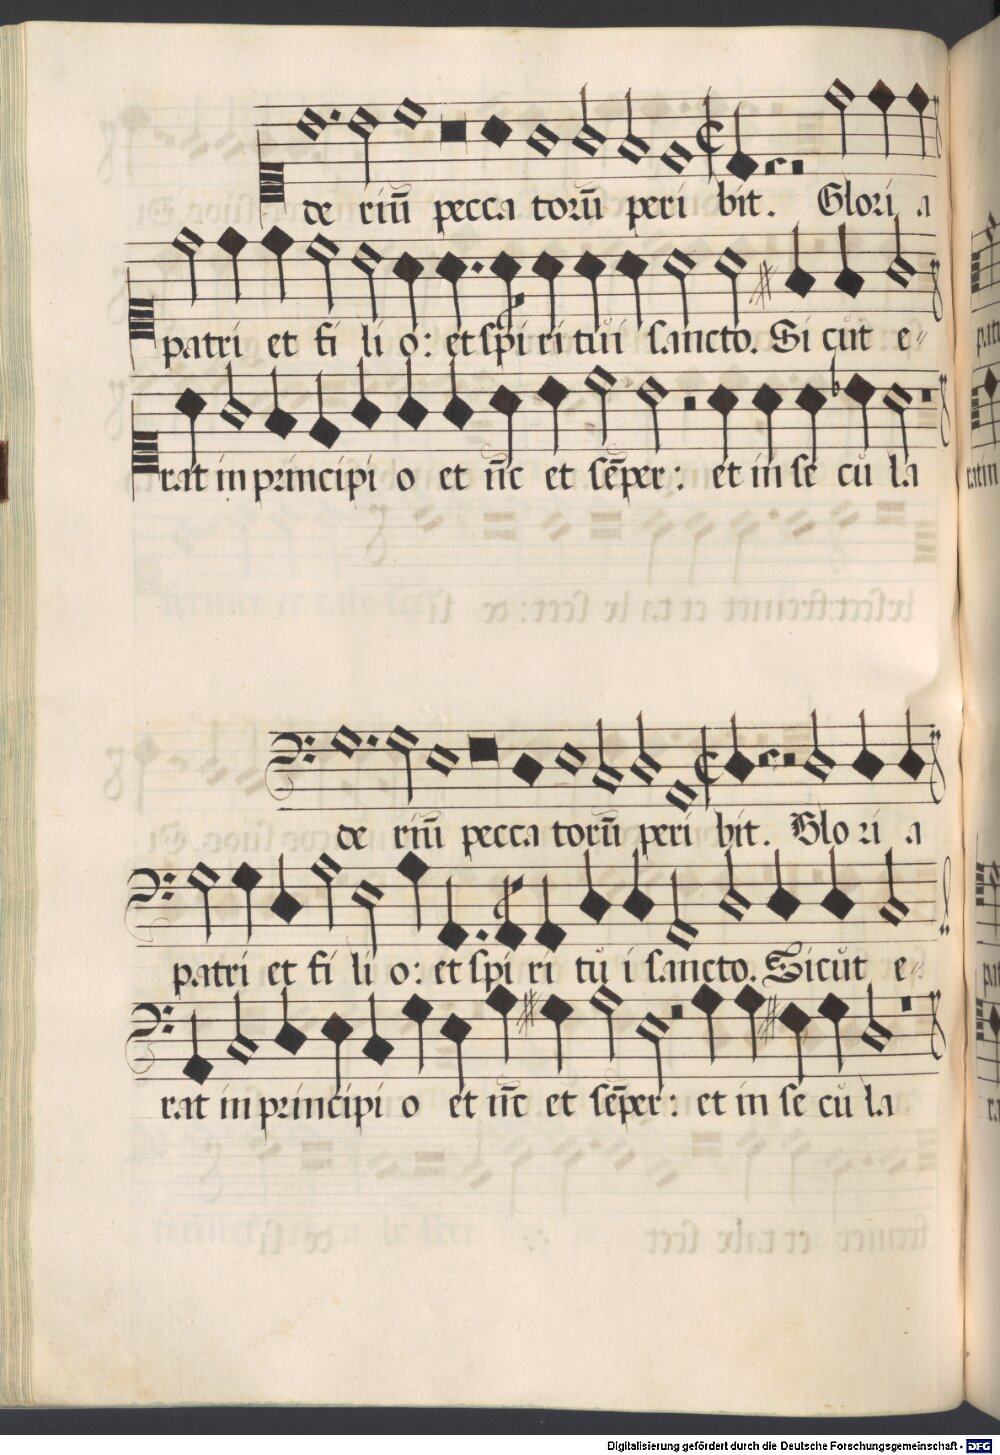 de riū pecca torū peri bit. Glori a
patri et fi li o: et spi ri tůi sancto. Si cůt e⸗
rat in principi o et nc̄ et sēper: et in se ců la
de riū pecca torū peri bit. Glo ri a
patri et fi li o: et spi ri tů i sancto. Sicůt e⸗
rat in principi o et nc̄ et sēper: et in se ců la
Digitalisierung gefördert durch die Deutsche Forschungsgemeinschaft - DFG